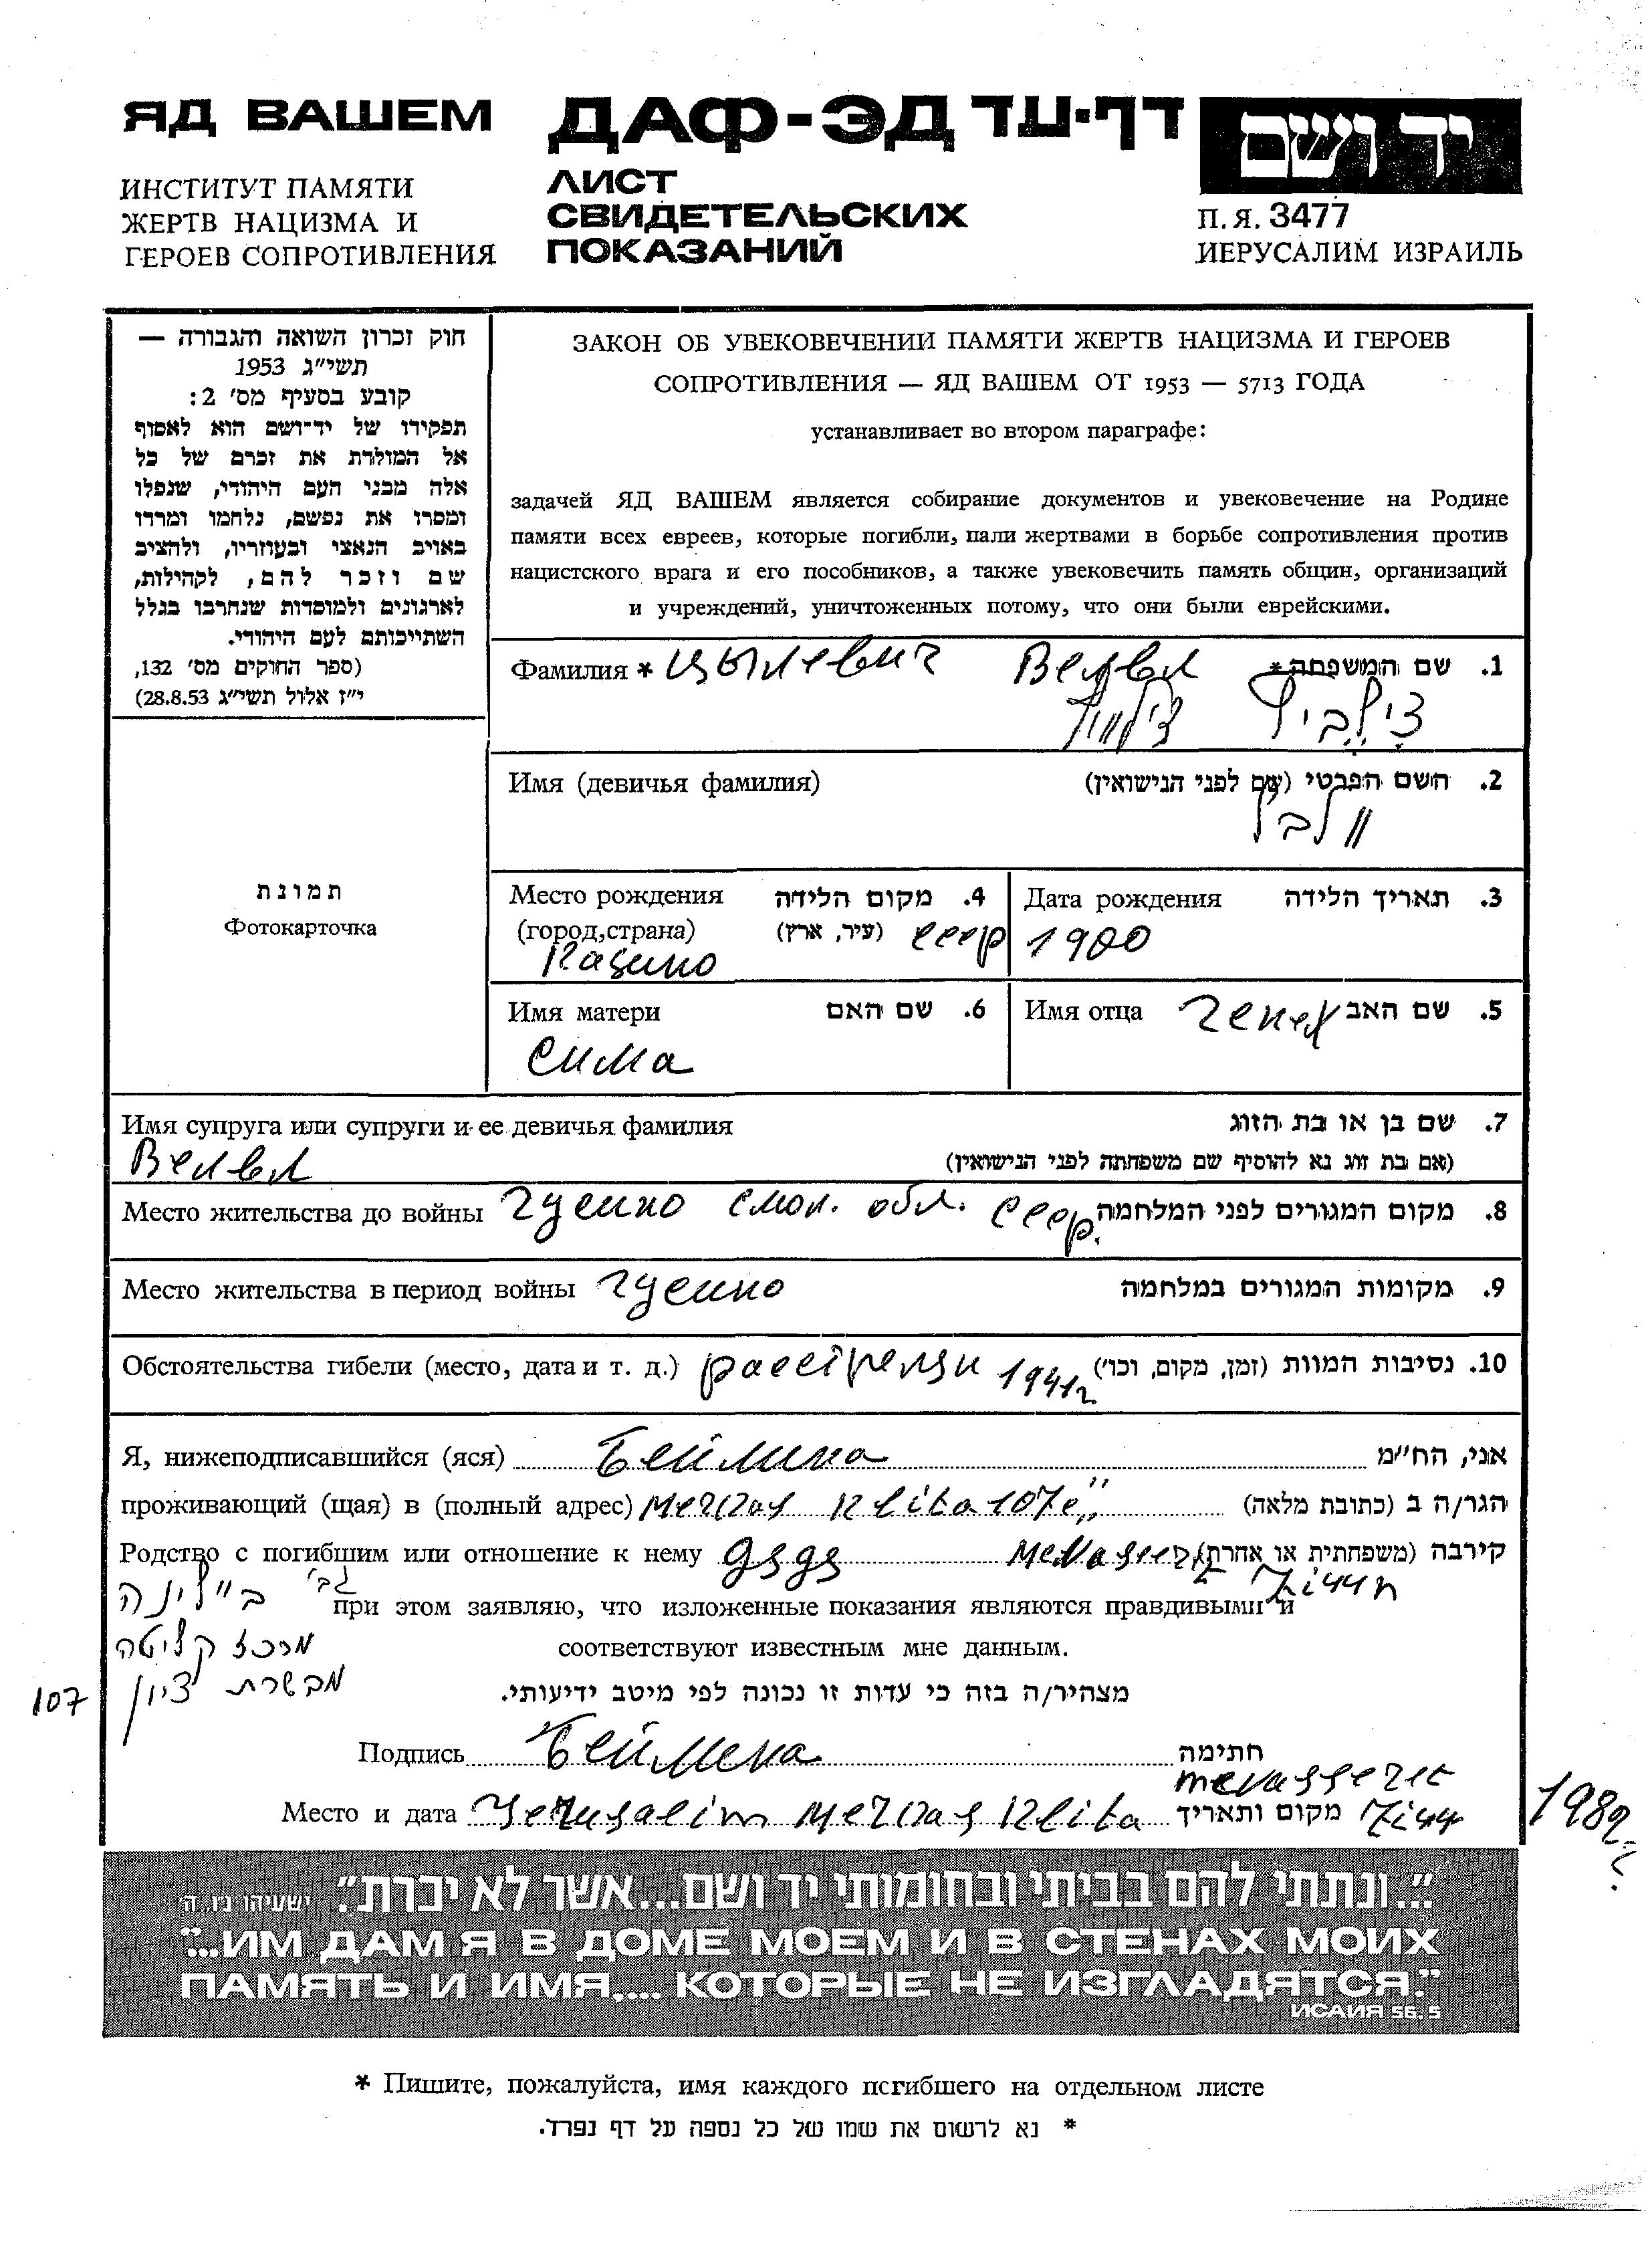 ЯД ВАШЕМ
ИНСТИТУТ ПАМЯТИ
ЖЕРТВ НАЦИЗМА И
ГЕРОЕВ СОПРОТИВЛЕНИЯ
ДАФ-ЭД דף-עד
ЛИСТ
СВИДЕТЕЛЬСКИХ
ПОКАЗАНИЙ
יד ושם
П.Я. 3477
ИЕРУСАЛИМ ИЗРАИЛЬ
חוק זכרון השואה והגבורה —
תשי"ג 1953
קובע בסעיף מס' 2:
תפקידו של יד־ושם הוא לאסוף
אל המולדת את זכרם של כל
אלה מבני העם היהודי, שנפלו
ומסרו את נפשם, נלחמו ומרדו
באויב הנאצי ובעוזריו, ולהציב
שם וזכר להם, לקהילות,
לארגונים ולמוסדות שנחרבו בגלל
השתייכותם לעם היהודי.
(ספר החוקים מס' 132,
י"ז אלול תשי"ג 28.8.53)
ЗАКОН ОБ УВЕКОВЕЧЕНИИ ПАМЯТИ ЖЕРТВ НАЦИЗМА И ГЕРОЕВ
СОПРОТИВЛЕНИЯ — ЯД ВАШЕМ ОТ 1953 — 5713 ГОДА
устанавливает во втором параграфе:
задачей ЯД ВАШЕМ является собирание документов и увековечение на Родине
памяти всех евреев, которые погибли, пали жертвами в борьбе сопротивления против
нацистского врага и его пособников, а также увековечить память общин, организаций
и учреждений, уничтоженных потому, что они были еврейскими.
Фамилия * Цылевич Велвл 1. שם המשפחה*
צילביץ'
Имя (девичья фамилия) 2. השם הפרטי (שם לפני הנישואין)
וולבל
תמונת
Фотокарточка
Место рождения 4. מקום הלידה
(город,страна) (עיר, ארץ) ссср
Казино
Дата рождения 3. תאריך הלידה
1900
Имя матери 6. שם האם
Сима
Имя отца Генех 5. שם האב
Имя супруга или супруги и ее девичья фамилия 7. שם בן או בת הזוג
Велвл (אם בת זוג נא להוסיף שם משפחתה לפני הנישואין)
Место жительства до войны Гусино смол. обл. ссср. 8. מקום המגורים לפני המלחמה
Место жительства в период войны Гусино 9. מקומות המגורים במלחמה
Обстоятельства гибели (место, дата и т. д.) 1941г 10. נסיבות המוות (זמן, מקום, וכו')
Я, нижеподписавшийся (яся) Бейлина אני, הח"מ
проживающий (щая) в (полный адрес) Merкas Klita 107 הגר/ה ב (כתובת מלאה)
Родство с погибшим или отношение к нему дядя קירבה (משפחתית או אחרת)
גב' ביילינה
при этом заявляю, что изложенные показания являются правдивыми и
מרכז קליטה
соответствуют известным мне данным.
מבשרת ציון
107
מצהיר/ה בזה כי עדות זו נכונה לפי מיטב ידיעותי.
Подпись Бейлина חתימה
mevasseret
Место и дата Jerusalim Merкas Klita מקום ותאריך
1982г.
"...ונתתי להם בביתי ובחומותי יד ושם...אשר לא יכרת". ישעיהו נ"ו. ה'
"...ИМ ДАМ Я В ДОМЕ МОЕМ И В СТЕНАХ МОИХ
ПАМЯТЬ И ИМЯ.... КОТОРЫЕ НЕ ИЗГЛАДЯТСЯ."
ИСАИЯ 56.5
* Пишите, пожалуйста, имя каждого погибшего на отдельном листе
* נא לרשום את שמו של כל נספה על דף נפרד.